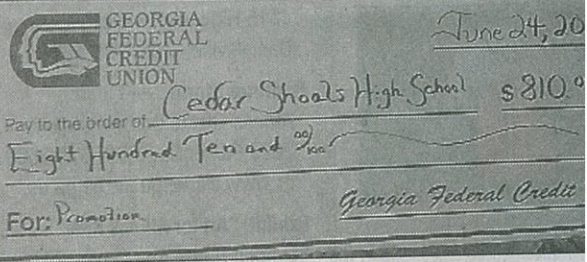 GEORGIA
FEDERAL
CREDIT
UNION
June 24, 20
Pay to the order of Cedar Shoals High School $ 810.0
Eight Hundred Ten and 00/100
For: Promotion
Georgia Federal Credit